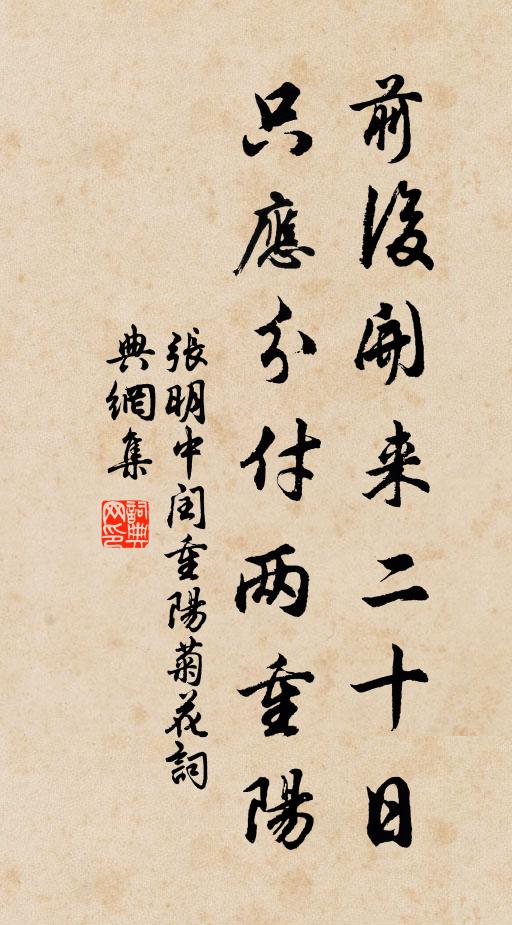 前後開来二十日
只應分付两重陽
張明中閏重陽菊花詞
典網集
詞典网印